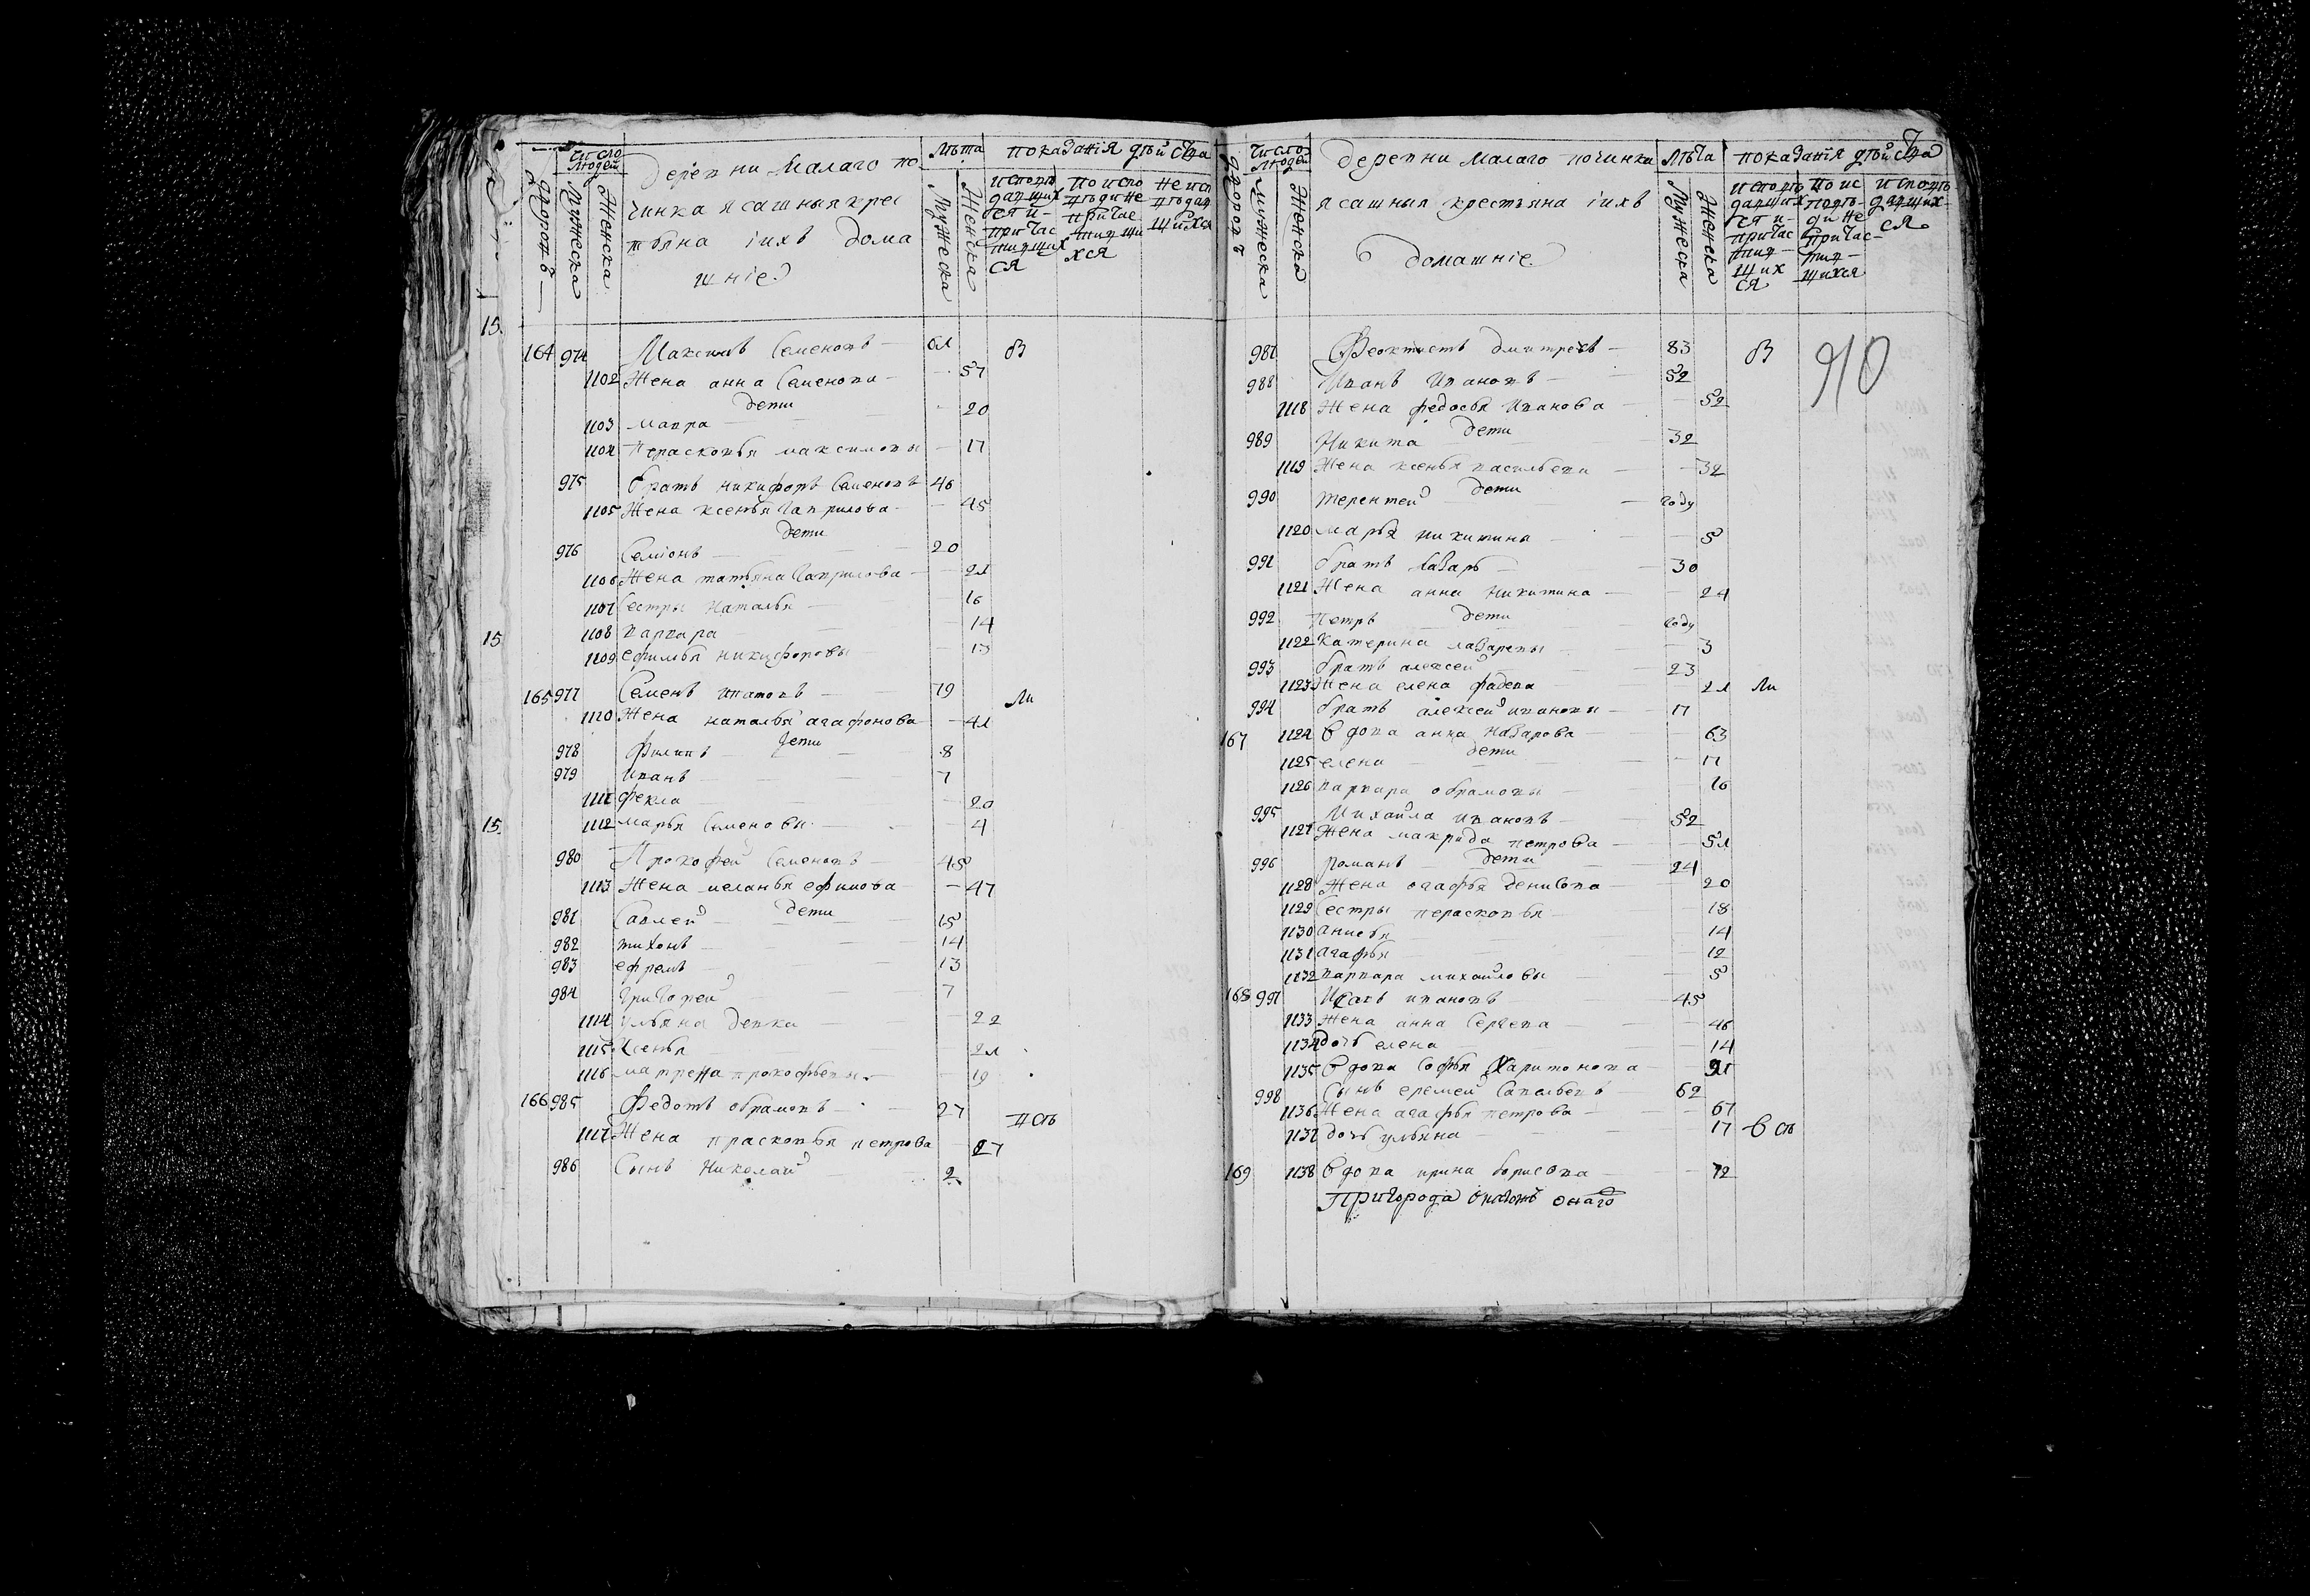 Число людей
дворовъ
Мужеска
Женска
Деревни Малаго по
чинка ясашныя крес
тьяна iихъ дома
шнiе
Лѣта
Мужеска
Женска
показанiя дѣйства
исповѣ
давших
ся и
причас
тивших
ся
по испо
вѣди не
причас
тивши
хся
не исп
вѣдав
шихся
15.
164 974 Максимъ Семеновъ 61 оз
1102 Жена анна Семенова 57
дети
1103 мавра 20
1104 Перасковья максимовы 17
975 братъ никифоръ Семеновъ 46
1105 Жена ксенья Гаврилова 45
дети
976 Семiонъ 20
1106 Жена татьяна Гаврилова 21
1107 Сестры Наталья 16
15 1108 варвара 14
1109 ефимья никифоровы 13
165 977 Семенъ ипатовъ 79 ли
1110 Жена наталья агафонова 41
дети
978 Филипъ 8
979 Иванъ 7
1111 фекла 20
15. 1112 марья Семеновы 4
980 Прокофей Семеновъ 45
1113 Жена меланья ефимова 47
дети
981 Савлей 15
982 тихонъ 14
983 ефремъ 13
984 григорей 7
1114 ульяна девка 22
1115 Ксенья 21
1116 матрена прокофьевы 19
166 985 Федотъ обрамовъ 27
1117 Жена прасковья петрова 27
986 Сынъ Николай 2
Число людей
дворовъ
Мужеска
Женска
деревни малаго починка
ясашныя крестьяна iихъ
домашнiе
Лѣта
Мужеска
Женска
показанiя дѣйства
исповѣ
давших
ся и
причас
тив
ших
ся
по ис
повѣ
ди не
причас
тив
шихся
исповѣ
давших
ся
987 Феоктистъ дмитревъ 83 оз
910
988 Иванъ Ивановъ 52
1118 Жена федосья Иванова 52
дети
989 Никита 32
1119 Жена ксенья васильева 32
дети
990 терентей году
1120 марья никитины 5
991 братъ лазарь 30
1121 Жена анна никитина 24
дети
992 Петръ году
1122 катерина лазаревы 3
993 братъ алексей 23
1123 Жена елена фадева 21 ли
994 братъ алексей ивановы 17
167 1124 вдова анна назарова 63
дети
1125 елена 17
1126 варвара обрамовы 16
995 Михайла ивановъ 52
1127 Жена макрида петрова 51
дети
996 романъ 24
1128 Жена огафья денисова 20
1129 Сестры перасковья 18
1130 анисья 14
1131 агафья 12
1132 варвара михайловы 5
168 997 Исакъ ивановъ 45
1133 Жена анна Сергева 46
1134 дочь елена 14
1135 вдова Софья Харитонова 91
998 Сынъ еремей Савельевъ 62
1136 Жена агафья петрова 67
1137 дочь ульяна 17
169 1138 вдова ирина борисова 72
Пригорода онаго